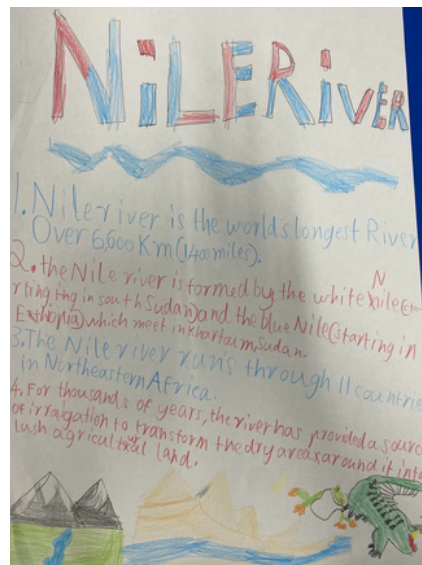 NiLERiVER
1. Nile river is the world's longest River
Over 6,600 Km (1400 miles).
N
2. the Nile river is formed by the white nile (sta-
rting ing in south Sudan) and the blue Nile (starting in
Ethiopia) which meet in khartoum, Sudan.
3. The Nile river run's through 11 countrie
in Northeastern Africa.
4. For thousands of years, the river has provided a sourc
of irraigation to transform the dry area around it into
lush agricultural land.